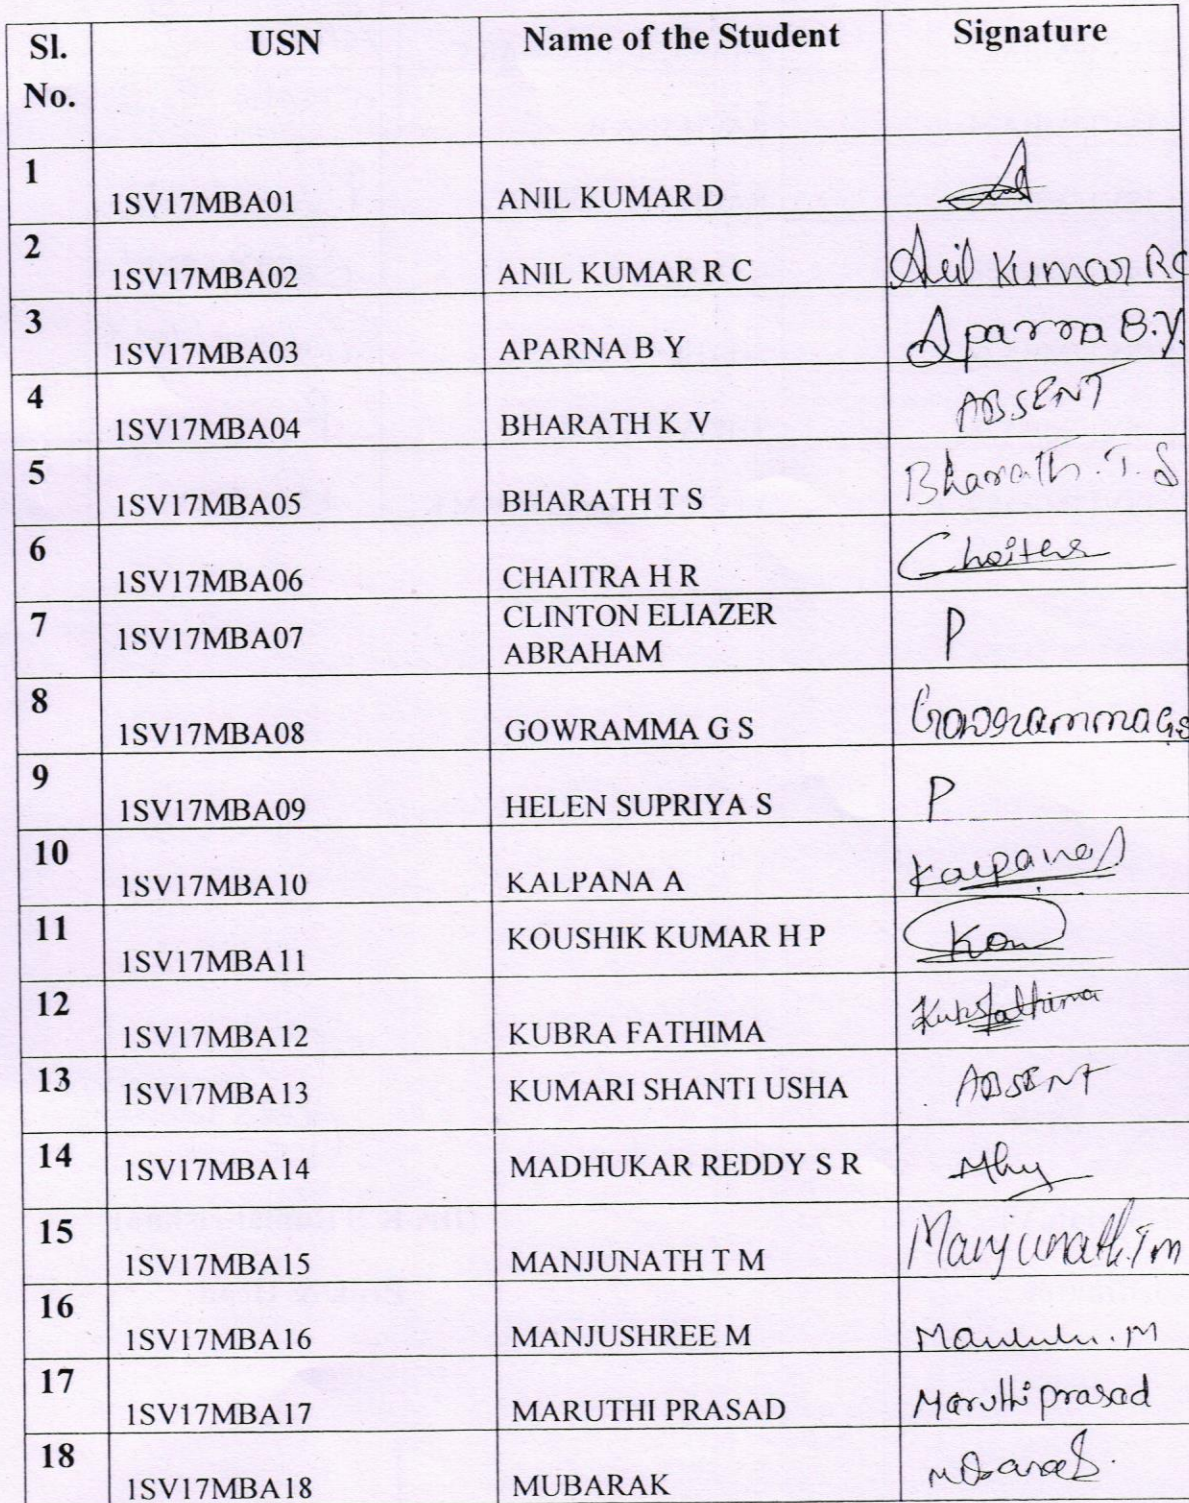 Sl. No. USN Name of the Student Signature
1 1SV17MBA01 ANIL KUMAR D
2 1SV17MBA02 ANIL KUMAR R C Anil Kumar RC
3 1SV17MBA03 APARNA B Y Aparna B.Y.
4 1SV17MBA04 BHARATH K V ABSENT
5 1SV17MBA05 BHARATH T S Bharath. T. S
6 1SV17MBA06 CHAITRA H R Chaitra
7 1SV17MBA07 CLINTON ELIAZER ABRAHAM P
8 1SV17MBA08 GOWRAMMA G S Gowramma G.S
9 1SV17MBA09 HELEN SUPRIYA S P
10 1SV17MBA10 KALPANA A Kalpana A
11 1SV17MBA11 KOUSHIK KUMAR H P Kou
12 1SV17MBA12 KUBRA FATHIMA Fathima
13 1SV17MBA13 KUMARI SHANTI USHA ABSENT
14 1SV17MBA14 MADHUKAR REDDY S R
15 1SV17MBA15 MANJUNATH T M Manjunath.Tm
16 1SV17MBA16 MANJUSHREE M
17 1SV17MBA17 MARUTHI PRASAD Maruthi prasad
18 1SV17MBA18 MUBARAK